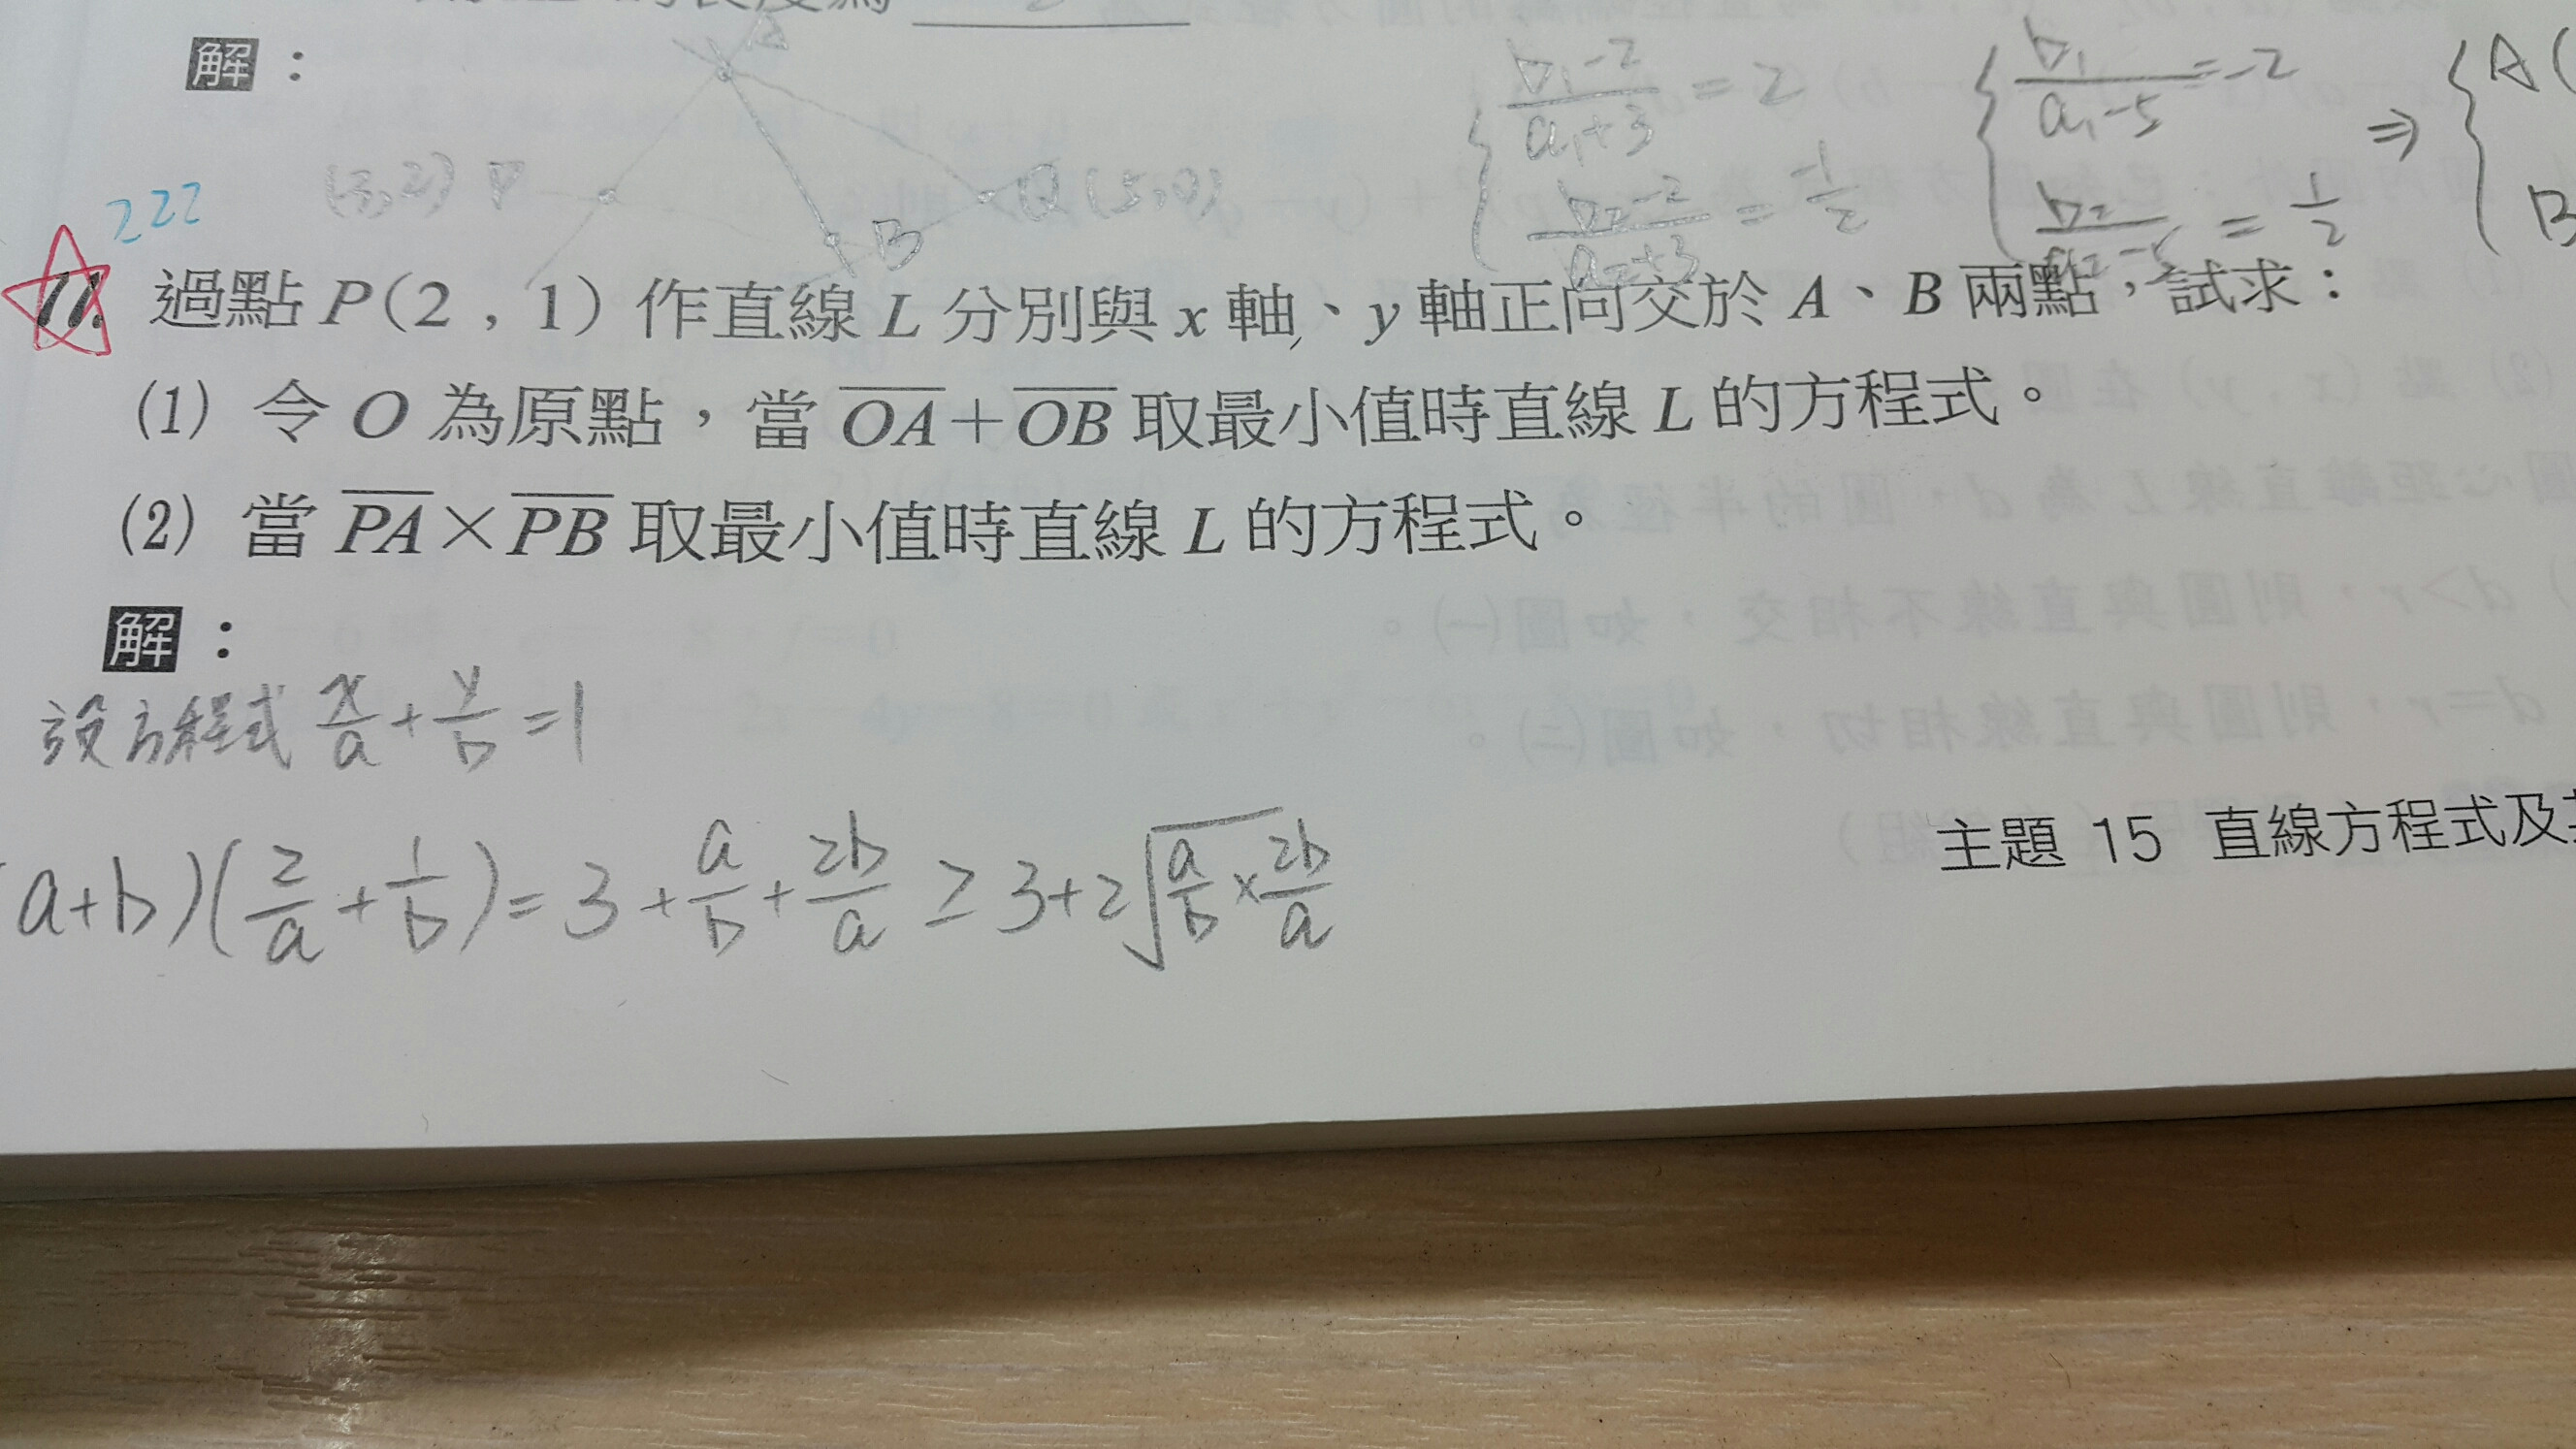 解：
(-3,2) P
A
B
Q (5,0)
b₁-2/a₁+3 = 2
b₂-2/a₂+3 = -1/2
b₁/a₁-5 = -2
b₂/a₂-5 = 1/2
⇒ { A(
B
222
11. 過點 P(2 , 1) 作直線 L 分別與 x 軸、y 軸正向交於 A、B 兩點，試求：
(1) 令 O 為原點，當 OA+OB 取最小值時直線 L 的方程式。
(2) 當 PA×PB 取最小值時直線 L 的方程式。
解：
設方程式 x/a + y/b = 1
a+b)(2/a + 1/b) = 3 + a/b + 2b/a ≥ 3+2√(a/b × 2b/a)
主題 15 直線方程式及